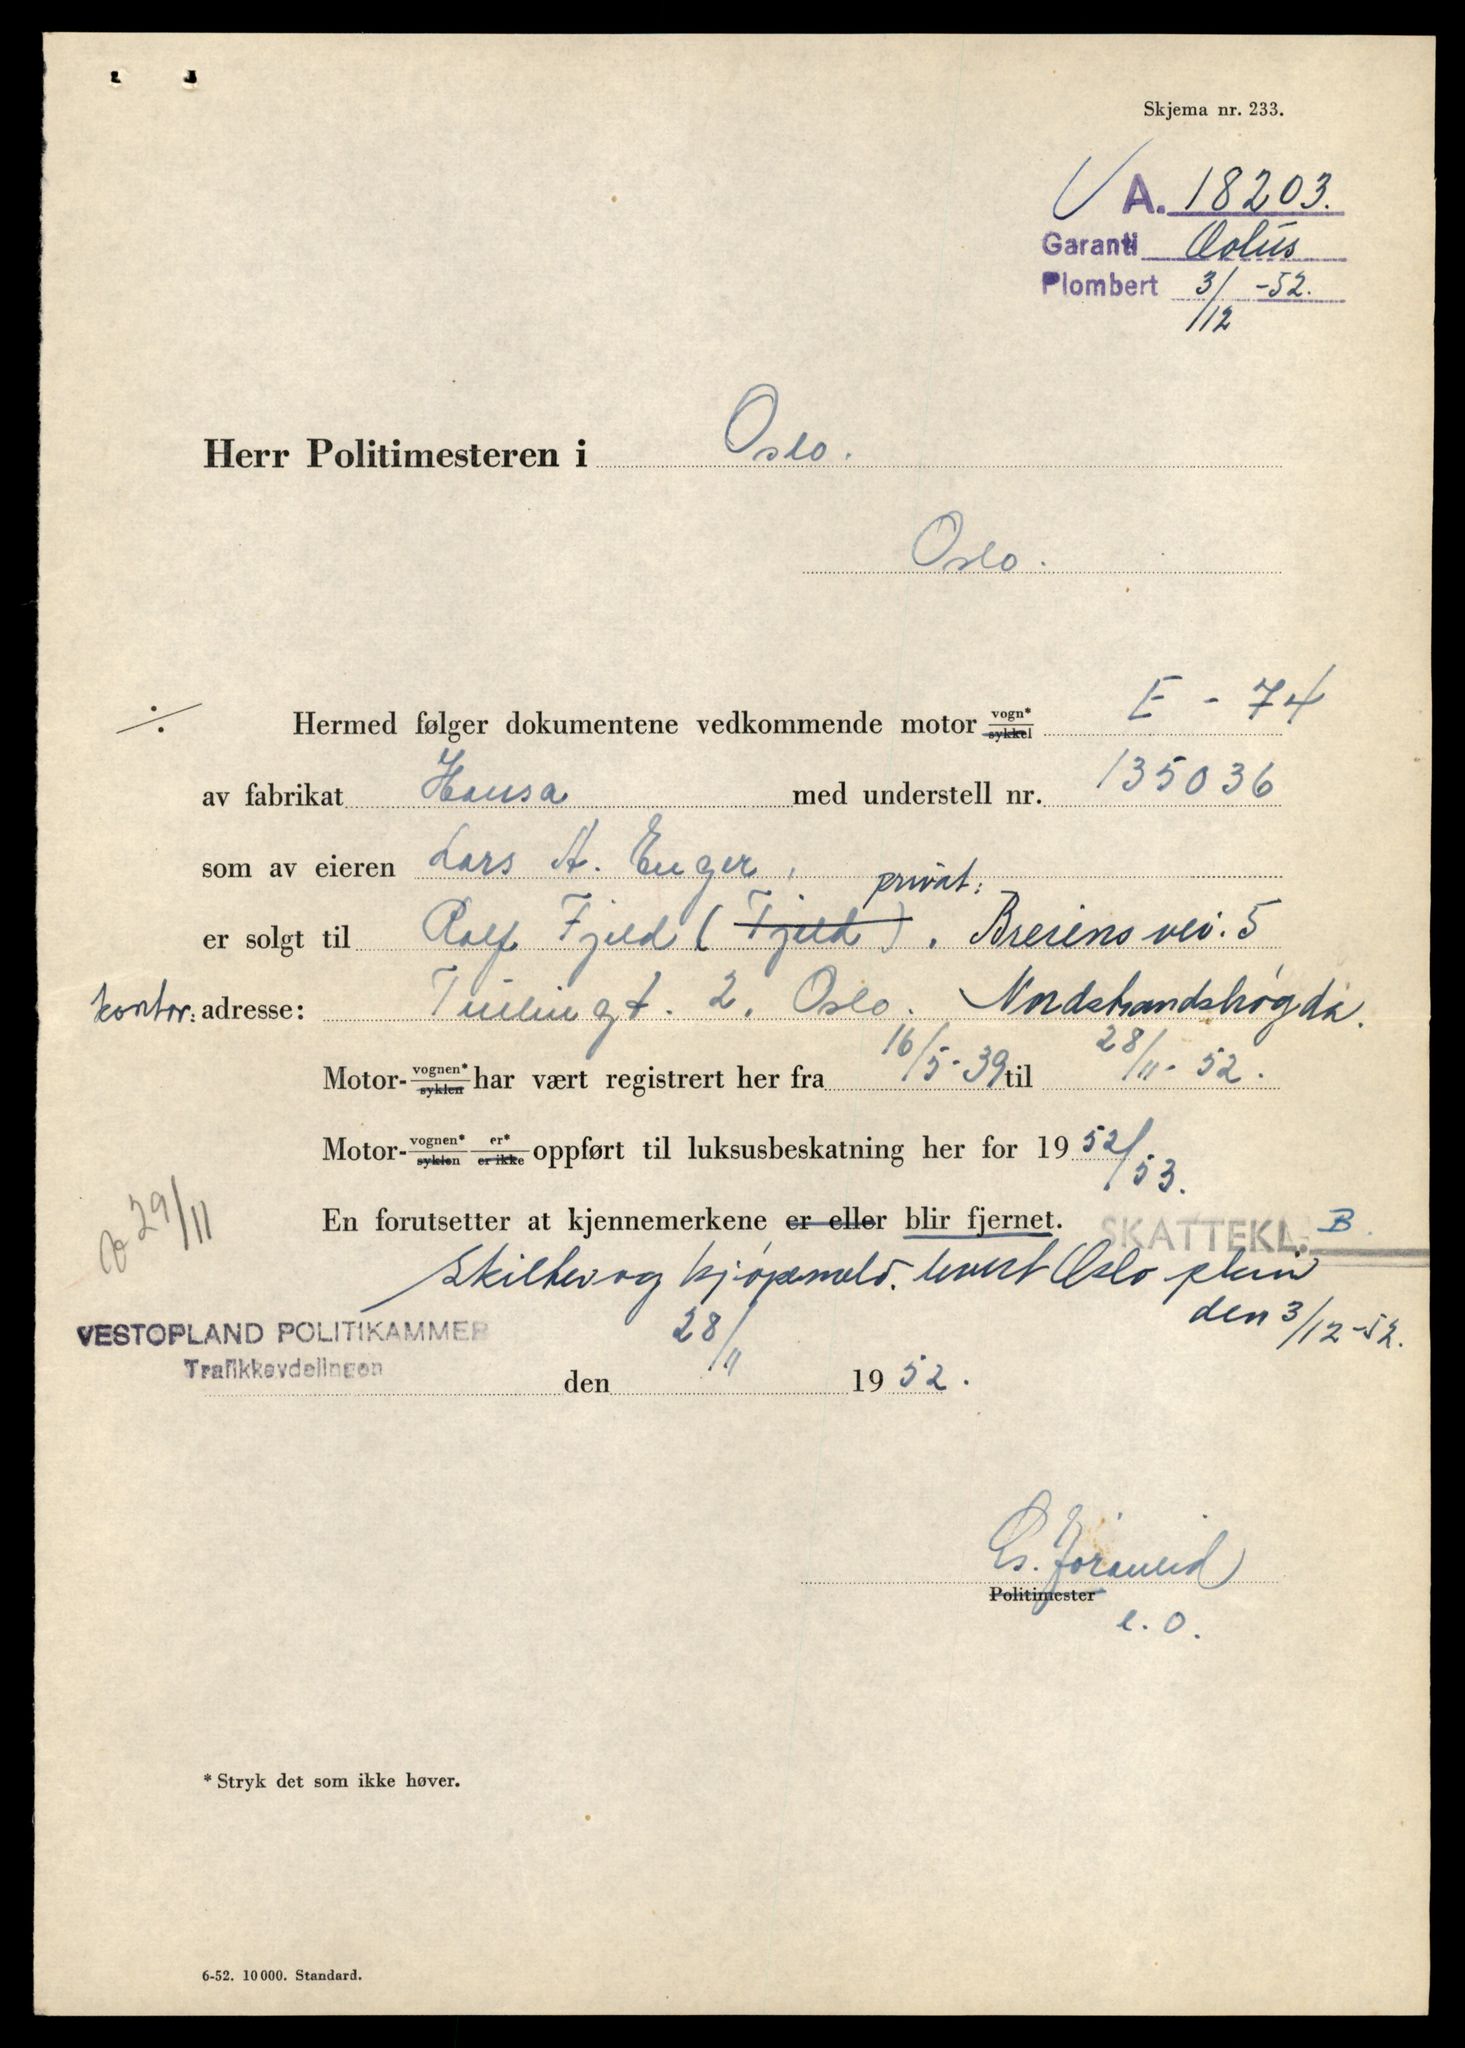 Skjema nr. 233.
A. 18203.
Garanti Æolus
Plombert 3/12 -52.
Herr Politimesteren i Oslo.
Oslo.
Hermed følger dokumentene vedkommende motor vogn* sykkel E - 74
av fabrikat Hansa med understell nr. 135036
som av eieren Lars A. Enger,
privat:
er solgt til Rolf Fjeld (Fjeld). Breiens vei. 5
kontor: adresse: Tullingt. 2. Oslo. Nordstrandshøgda.
Motor- vognen* syklen har vært registrert her fra 16/5-39 til 28/11-52.
Motor- vognen* syklen er* er ikke oppført til luksusbeskatning her for 1952/53.
29/11
En forutsetter at kjennemerkene er eller blir fjernet. SKATTEKL. B.
Skilter og kjøpemeld. levert Oslo
den 3/12-52.
VESTOPLAND POLITIKAMMER
Trafikkavdelingen
den 28/11 1952.
Politimester
e. o.
* Stryk det som ikke høver.
6-52. 10 000. Standard.